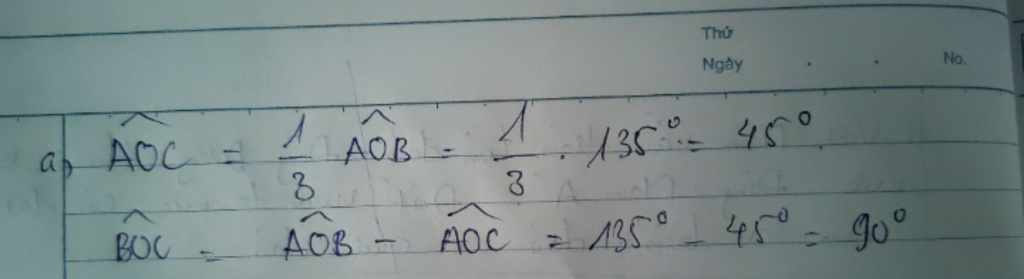 Thứ
Ngày . . No.
a) \widehat{AOC} = \frac{1}{3} \widehat{AOB} = \frac{1}{3} . 135° = 45°.
\widehat{BOC} = \widehat{AOB} - \widehat{AOC} = 135° - 45° = 90°